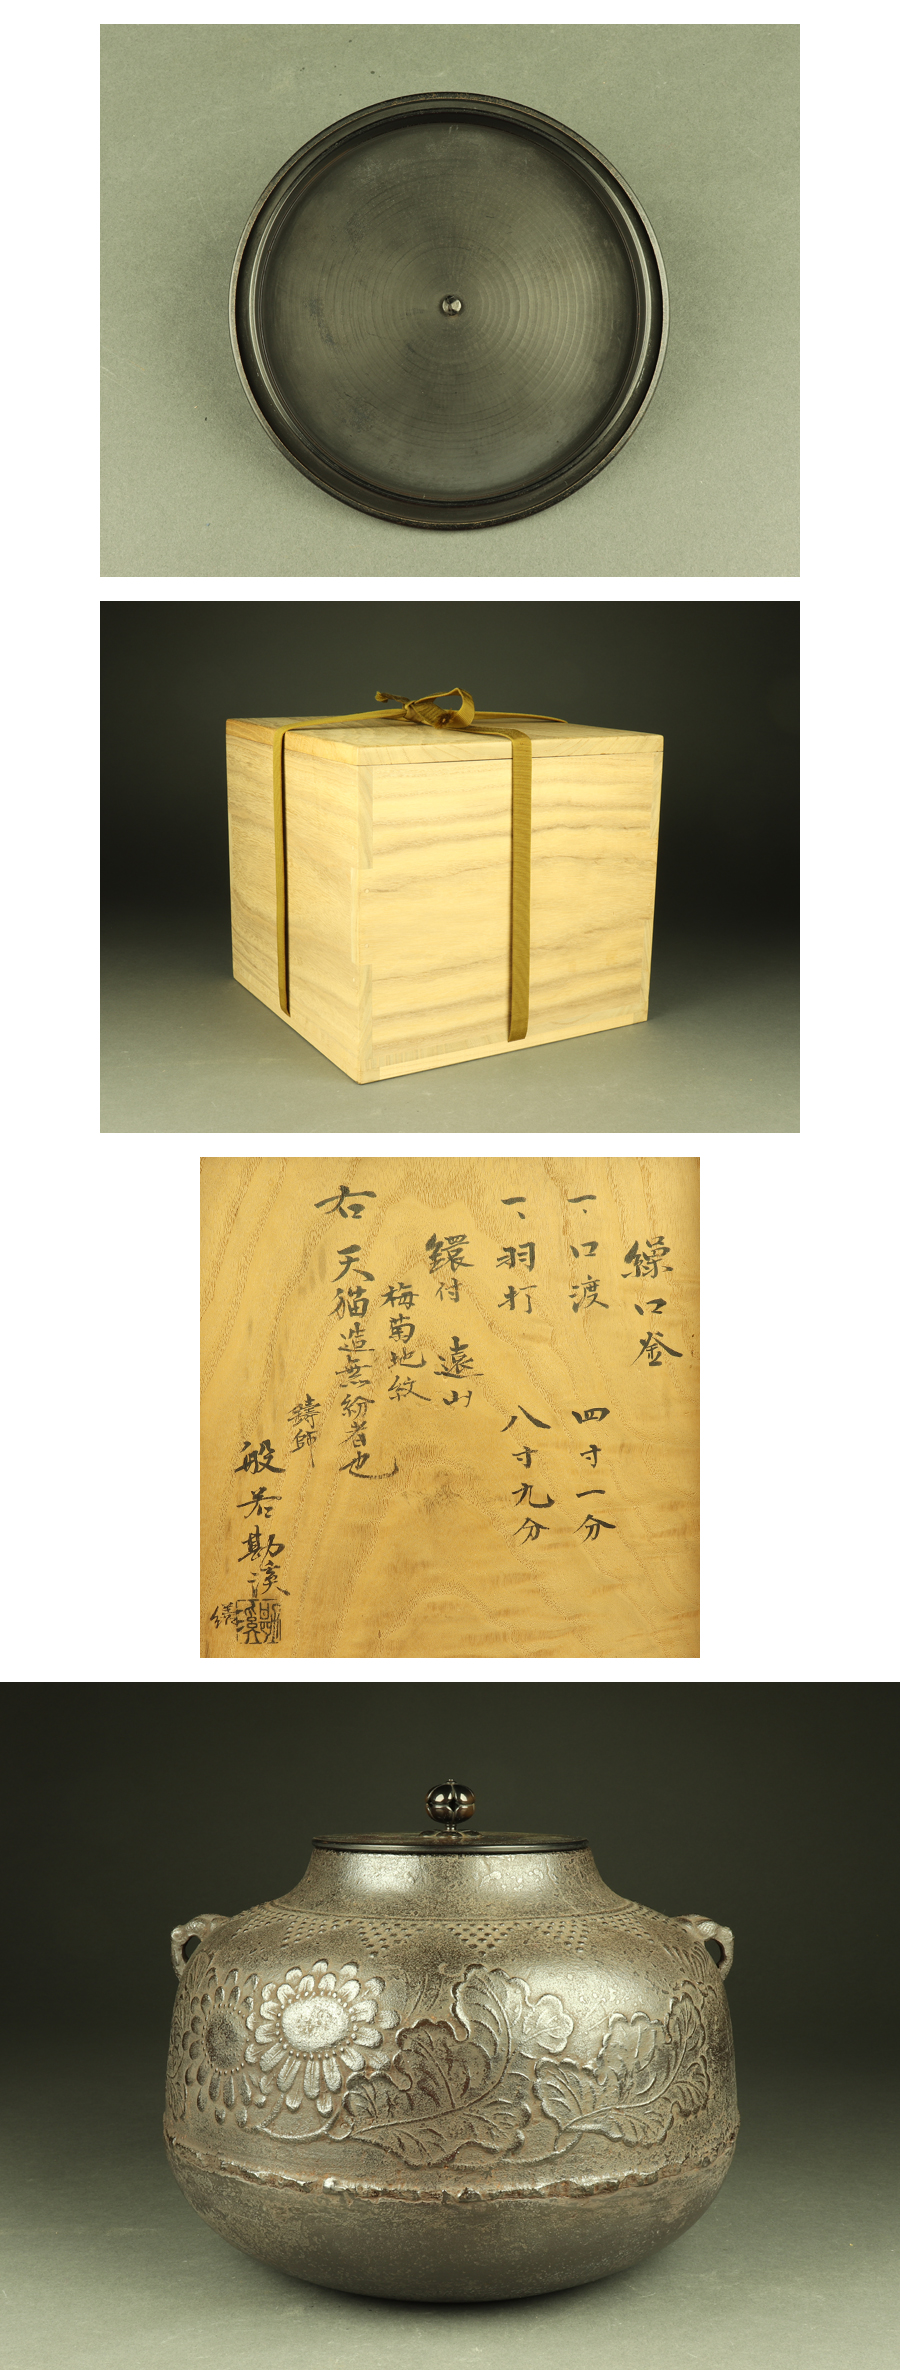 繰口釜
一、口渡 四寸一分
一、羽打 八寸九分
鐶付 遠山
梅菊地紋
右 天猫造無紛者也
鋳師
般若勘溪